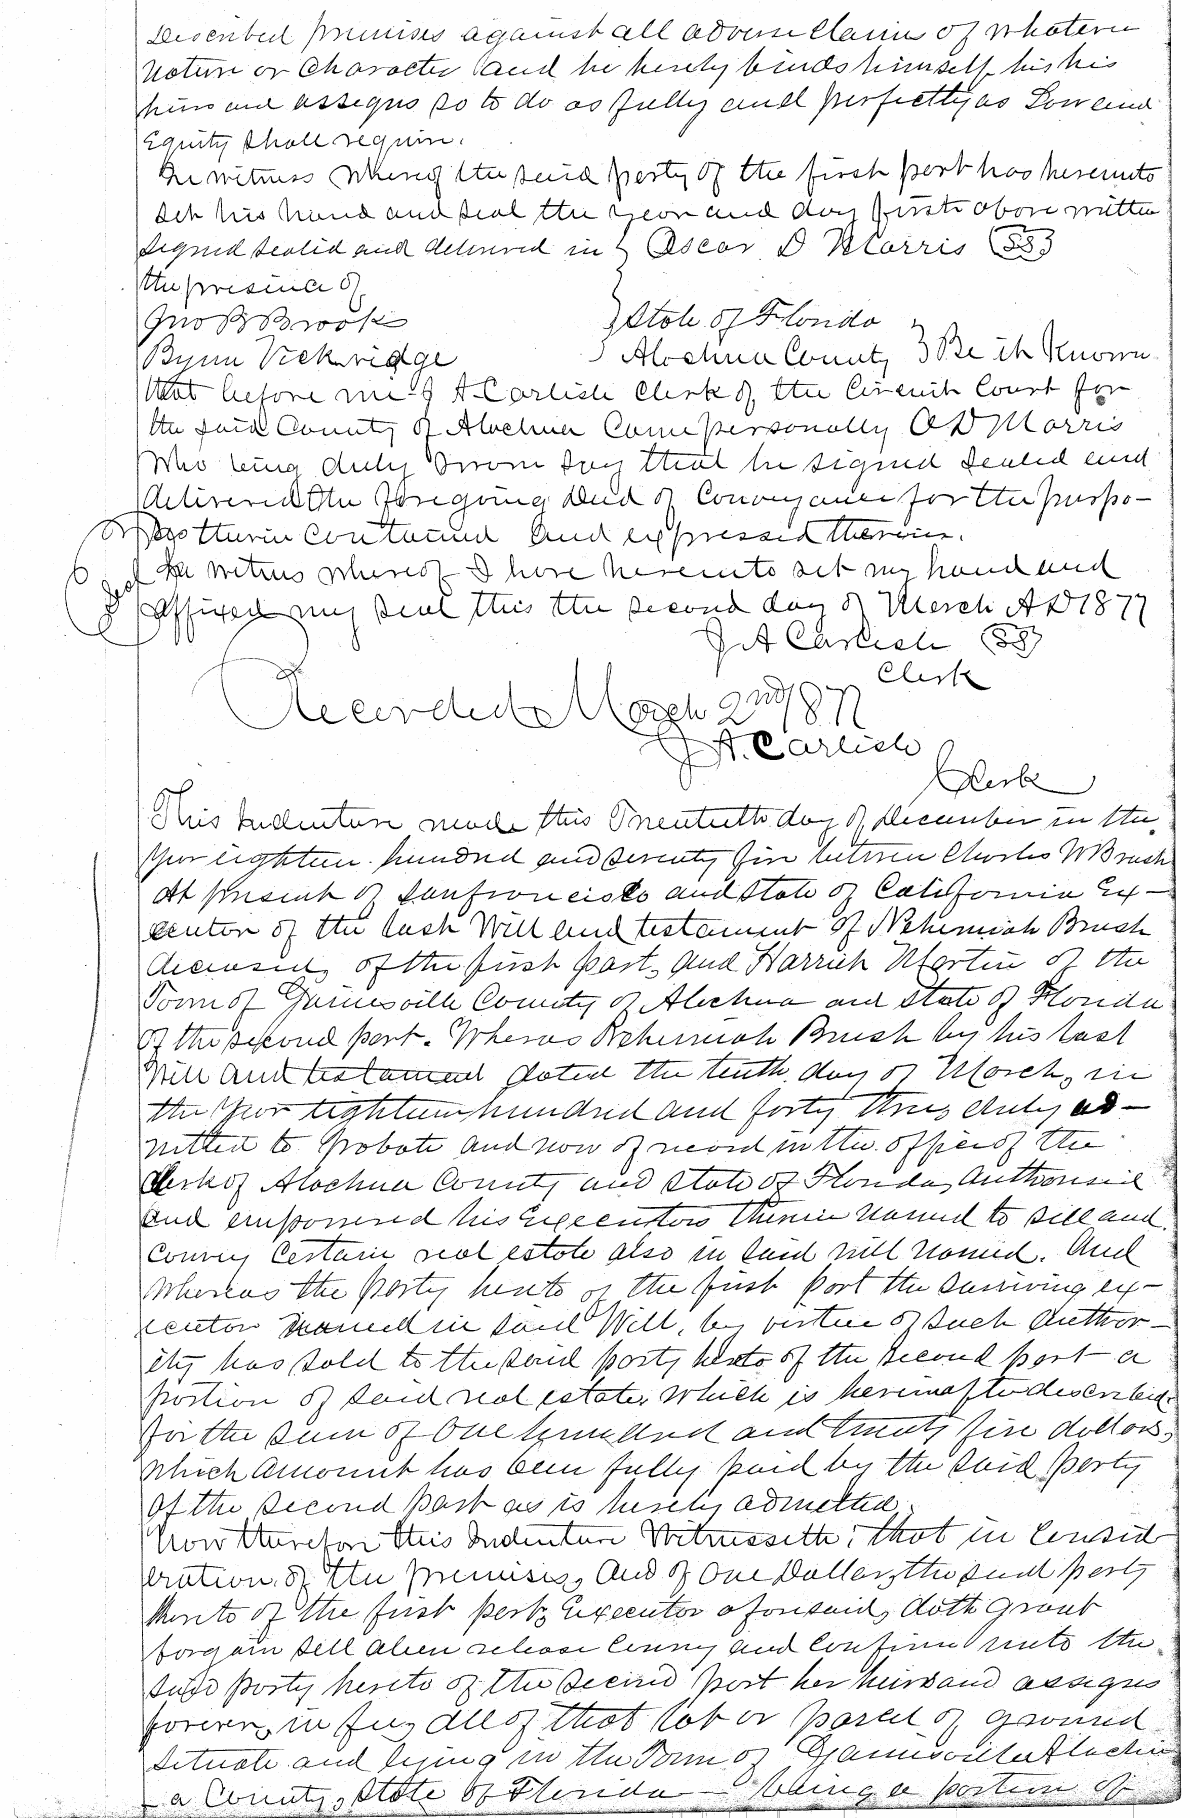 Described premises against all adverse Claims of whatever
Nature or Character and he hereby binds himself his his
heirs and assigns so to do as fully and perfectly as Law and
Equity shall require.
In witness whereof the said party of the first part has hereunto
set his hand and seal the year and day first above written
Signed sealed and delivered in } Oscar D Morris (SS)
the presence of
Geo B Brook } State of Florida
Bynn Vickridge } Alachua County } Be it Known
that before me J A Carlisle Clerk of the Circuit Court for
the said County of Alachua Came personally O D Morris
Who being duly sworn say that he signed sealed and
delivered the foregoing Deed of Conveyance for the purpo-
ses therein contained and expressed therein.
Seal In witness whereof I have hereunto set my hand and
affixed my seal this the second day of March A D 1877
J A Carlisle (SS)
Clerk
Recorded March 2nd 1877
J A. Carlisle
Clerk
This Indenture made this Twentieth day of December in the
Year eighteen hundred and seventy five between Charles W Brush
At present of San francisco and State of California Ex-
ecutor of the last Will and testament of Nehemiah Brush
deceased, of the first part, and Harriet Martin of the
Town of Gainesville County of Alachua and State of Florida
of the second part. Whereas Nehemiah Brush by his last
Will and testament dated the tenth day of March, in
the Year eighteen hundred and forty three, duly ad-
mitted to Probate and now of record in the office of the
Clerk of Alachua County and State of Florida, Authorised
and empowered his Executors therein named to sell and
convey Certain real estate also in said will named. And
Whereas the party hereto of the first part the surviving ex-
ecutor named in said Will, by virtue of such Author-
ity has sold to the said party hereto of the second part a
portion of said real estate, which is hereinafter described
for the sum of One hundred and twenty five dollars,
which amount has been fully paid by the said party
of the second part as is hereby admitted.
Now therefore this Indenture Witnesseth; that in consid
eration of the premises, And of One Dollar, the said party
hereto of the first part, Executor aforesaid, doth grant
bargain sell alien release Convey and Confirm unto the
said party hereto of the second part her heirs and assigns
forever, in fee, all of that lot or parcel of ground
situate and lying in the Town of Gainesville Alachu
a County, State of Florida — being a portion of